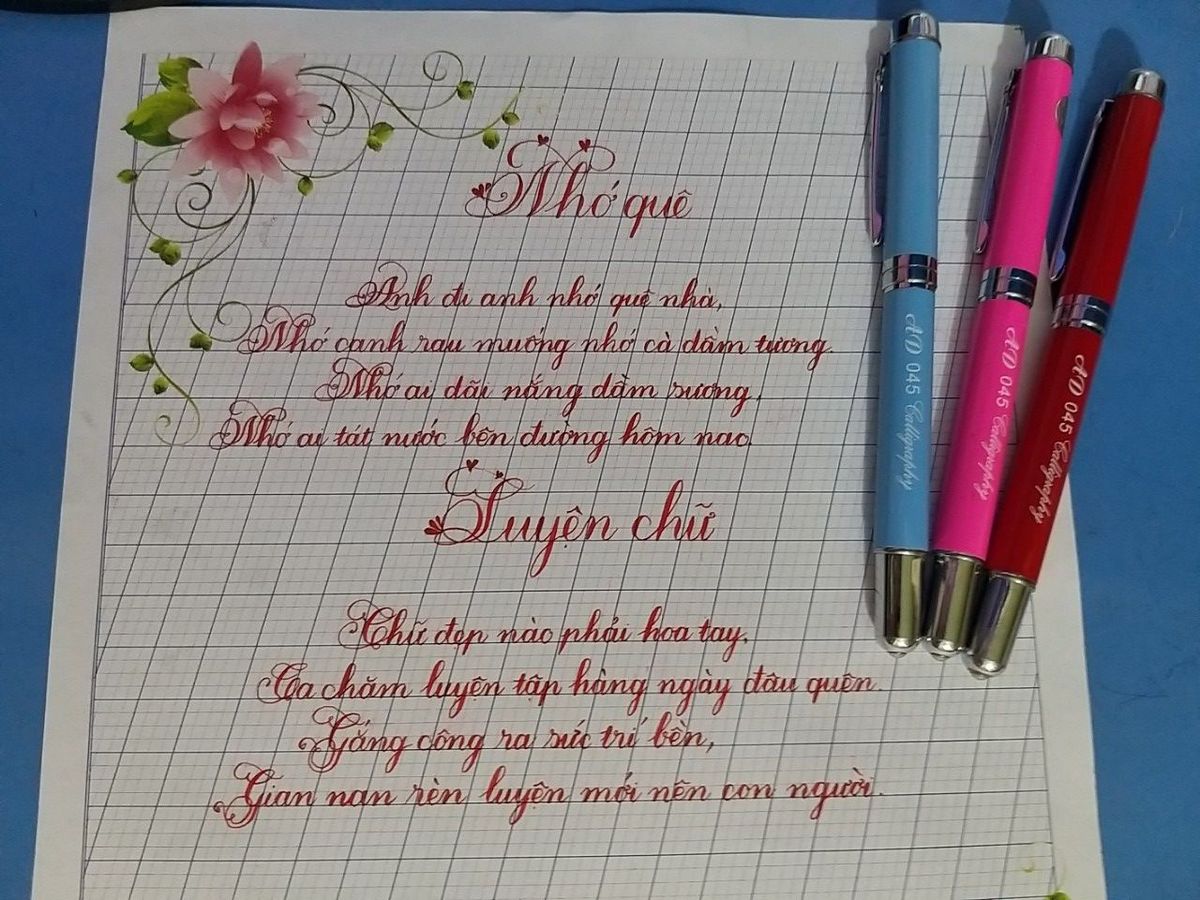 Nhớ quê
Anh đi anh nhớ quê nhà,
Nhớ canh rau muống nhớ cà dầm tương.
Nhớ ai dãi nắng dầm sương,
Nhớ ai tát nước bên đường hôm nao.
Luyện chữ
Chữ đẹp nào phải hoa tay,
Ta chăm luyện tập hàng ngày đâu quên.
Gắng công ra sức trí bền,
Gian nan rèn luyện mới nên con người.
AD 045 Calligraphy
AD 045 Calligraphy
AD 045 Calligraphy